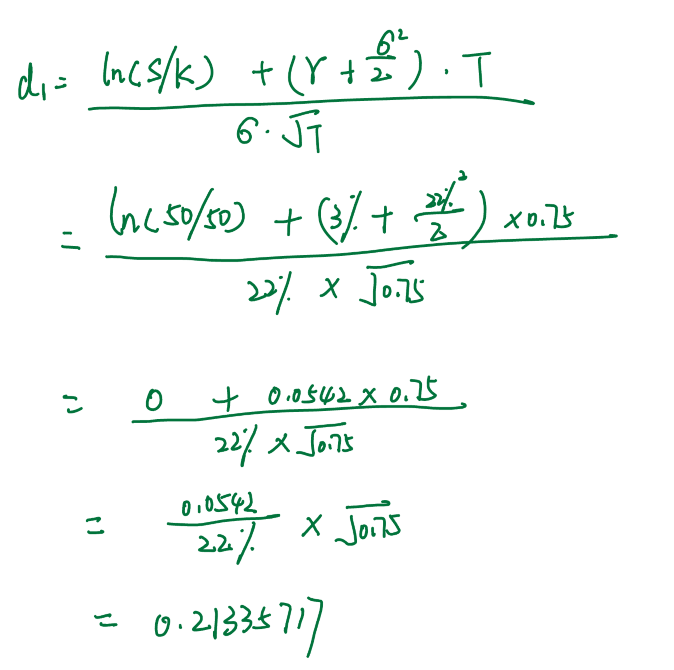 d₁ = (ln(S/K) + (r + σ²/2) · T) / (σ · √T)
= (ln(50/50) + (3% + 22%²/2) × 0.75) / (22% × √0.75)
= (0 + 0.0542 × 0.75) / (22% × √0.75)
= 0.0542 / 22% × √0.75
= 0.21335717